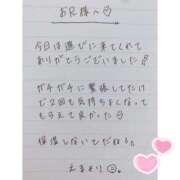 お兄様へ♡
今日は遊びに来てくれて
ありがとうございました
ガチガチに緊張してたけど
で2回も気持ちよくなって
もらえて良かった♡
保湿しないでだねる。
えまより